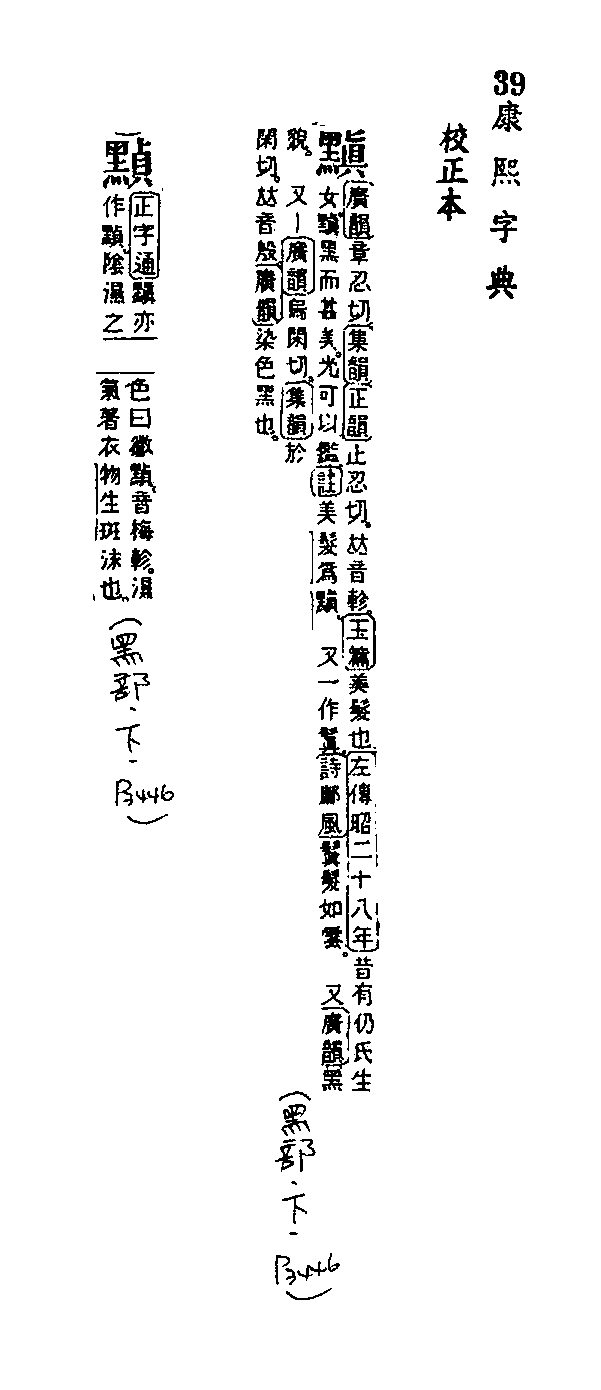 39康熙字典
校正本
黰廣韻章忍切集韻正韻止忍切𠀤音軫玉篇美髮也左傳昭二十八年昔有仍氏生
女黰黑而甚美光可以鑑註美髮爲黰 又一作鬒詩鄘風鬒髮如雲 又廣韻黑
貌 又廣韻烏閑切集韻於
閑切𠀤音殷廣韻染色黑也
(黑部.下.P3446)
正字通黰亦
作䫃陰濕之
色曰黴䫃音梅軫濕
氣著衣物生斑沫也
(黑部.下.P3446)